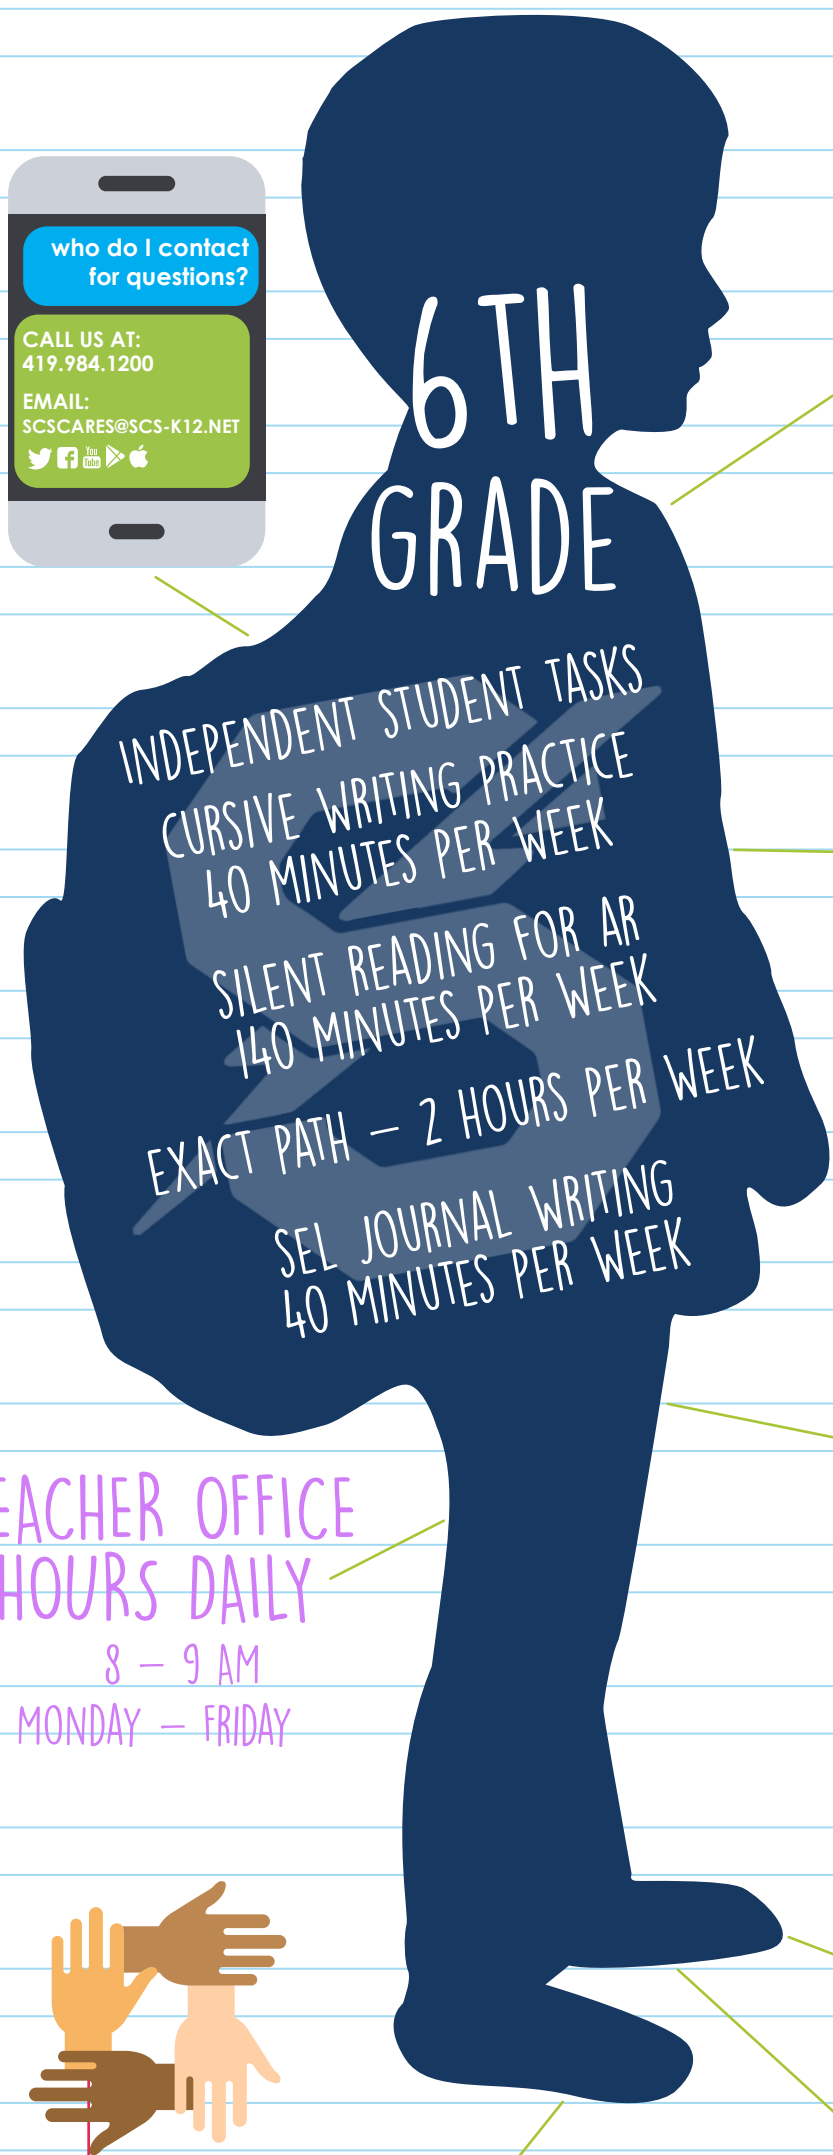 who do I contact
for questions?
CALL US AT:
419.984.1200
EMAIL:
SCSCARES@SCS-K12.NET
You
Tube
6TH
GRADE
INDEPENDENT STUDENT TASKS
CURSIVE WRITING PRACTICE
40 MINUTES PER WEEK
SILENT READING FOR AR
140 MINUTES PER WEEK
EXACT PATH – 2 HOURS PER WEEK
SEL JOURNAL WRITING
40 MINUTES PER WEEK
EACHER OFFICE
HOURS DAILY
8 – 9 AM
MONDAY – FRIDAY